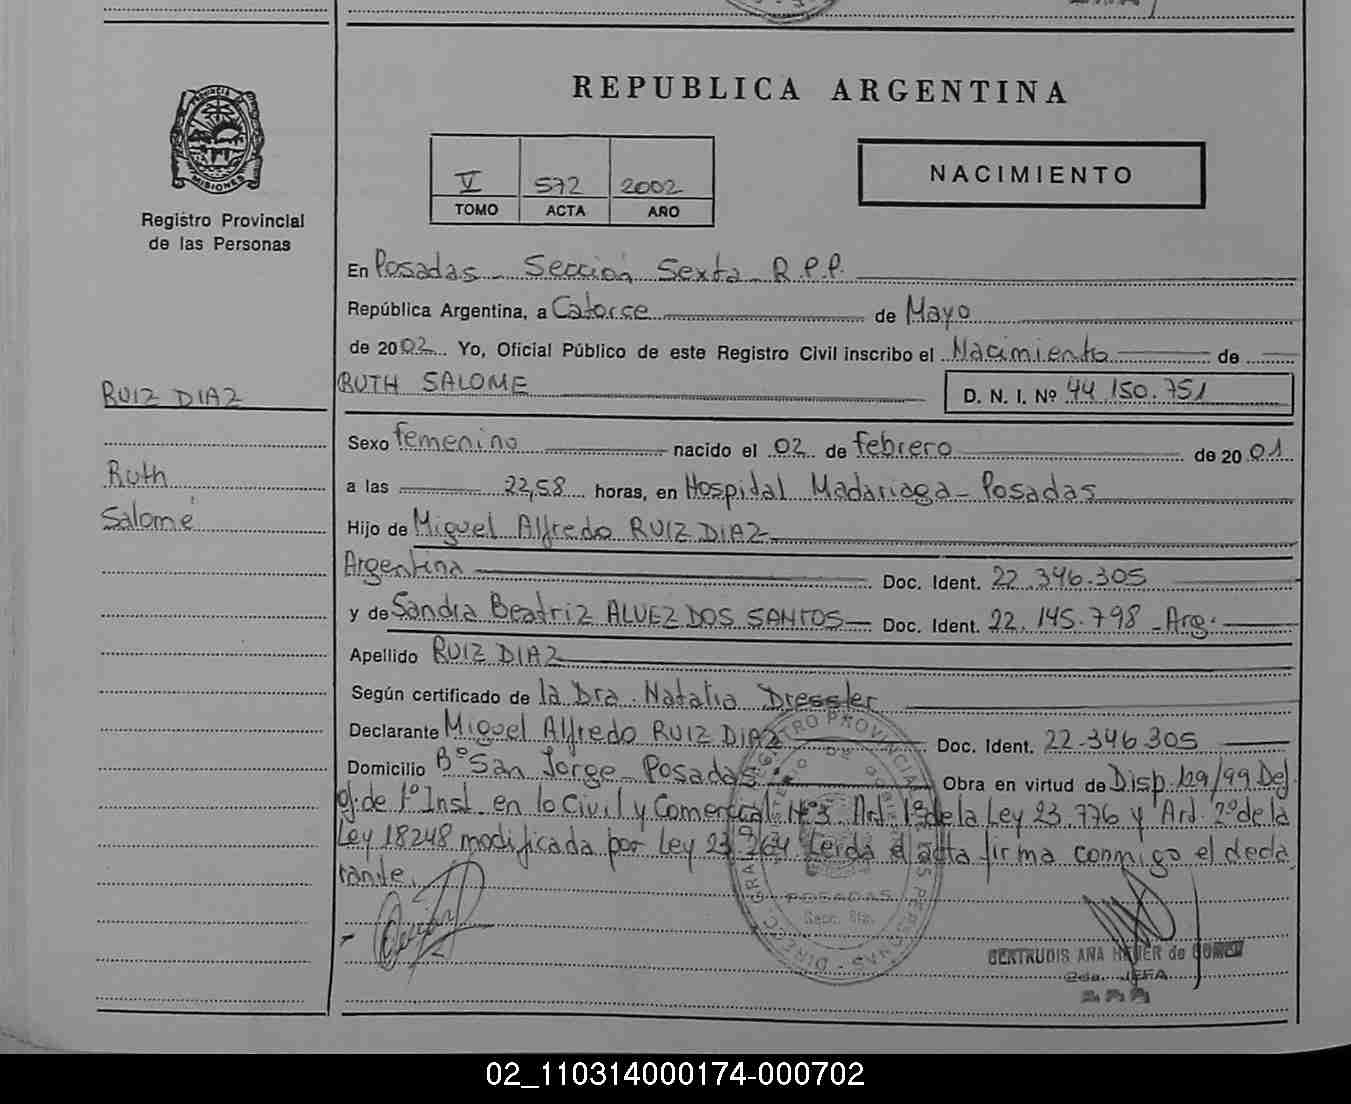 REPUBLICA ARGENTINA
PROVINCIA DE
MISIONES
Registro Provincial
de las Personas
V 572 2002
TOMO ACTA AÑO
NACIMIENTO
En Posadas - Sección Sexta R.P.P.
República Argentina, a Catorce de Mayo
de 2002 Yo, Oficial Público de este Registro Civil inscribo el Nacimiento de
RUIZ DIAZ
RUTH SALOME
D. N. I. Nº 44.150.751
Sexo femenino nacido el 02 de febrero de 2001
Ruth
Salomé
a las 22,58 horas, en Hospital Madariaga - Posadas
Hijo de Miguel Alfredo RUIZ DIAZ
Argentina Doc. Ident. 22.346.305
y de Sandra Beatriz ALVEZ DOS SANTOS Doc. Ident. 22.145.798 - Arg.
Apellido RUIZ DIAZ
Según certificado de la Dra. Natalia Dressler
Declarante Miguel Alfredo RUIZ DIAZ Doc. Ident. 22.346.305
Domicilio Bº San Jorge - Posadas Obra en virtud de Disp. 129/99
de 1º Inst. en lo Civil y Comercial Nº3. Art. 1º de la Ley 23.776 y Art. 2º de la
Ley 18248 modificada por Ley 23.264. Leida el acta firma conmigo el decla
rante.
POSADAS
Secc. 6ta.
GERTRUDIS ANA de
2da. JEFA